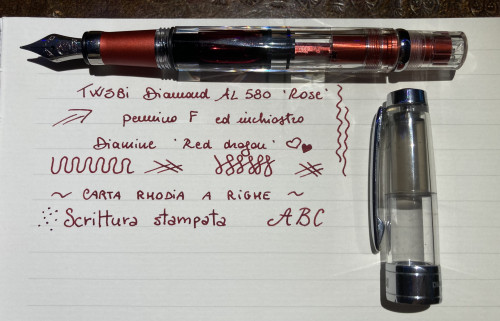 TWSBi Diamond AL 580 'Rose'
pennino F ed inchiostro
Diamine 'Red dragon'
~ CARTA RHODIA A RIGHE ~
Scrittura stampata ABC